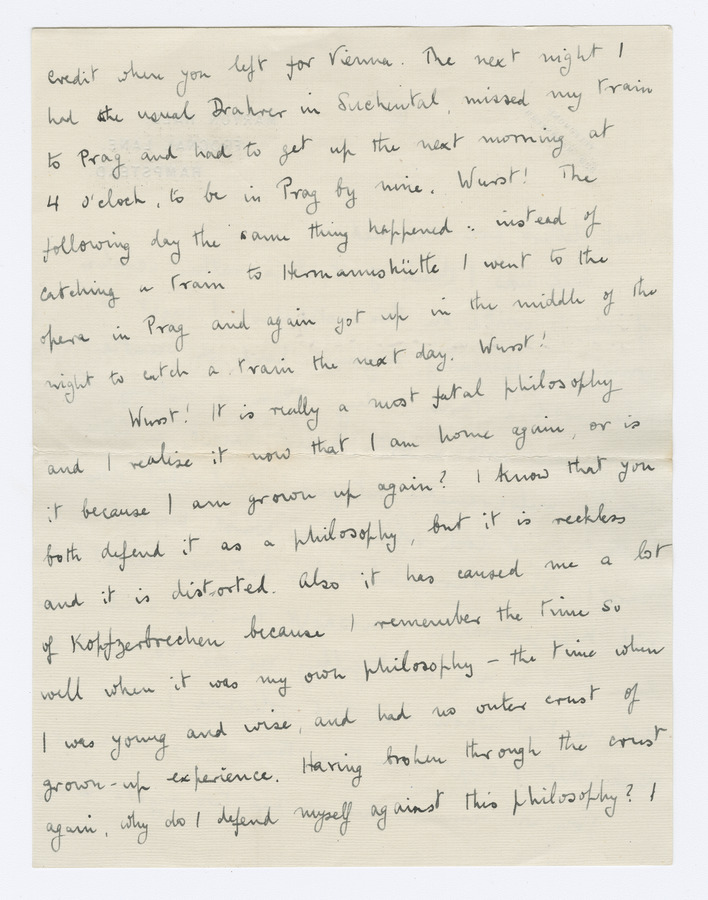 credit when you left for Vienna. The next night I
had the usual Drahrer in Suchental, missed my train
to Prag and had to get up the next morning at
4 o'clock, to be in Prag by nine. Wurst! The
following day the same thing happened : instead of
catching a train to Hermannshütte I went to the
opera in Prag and again got up in the middle of the
night to catch a train the next day. Wurst!
Wurst! It is really a most fatal philosophy
and I realise it now that I am home again, or is
it because I am grown up again? I know that you
both defend it as a philosophy, but it is reckless
and it is distorted. Also it has caused me a lot
of Kopfzerbrechen because I remember the time so
well when it was my own philosophy – the time when
I was young and wise, and had no outer crust of
grown-up experience. Having broken through the crust
again, why do I defend myself against this philosophy? I